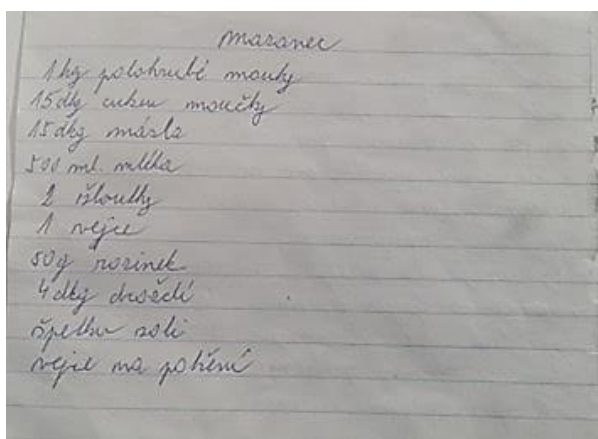 mazanec
1 kg polohrubé mouky
15dkg cukru moučky
15dkg másla
500 ml. mléka
2 žloutky
1 vejce
50g rozinek
4dkg droždí
špetku soli
vejce na potření